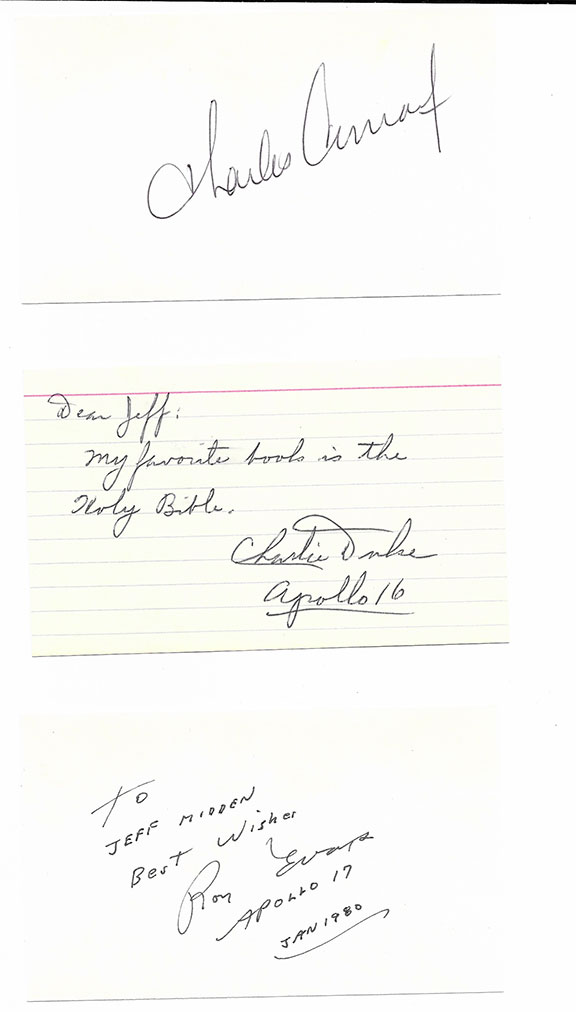 Charles Conrad
Dear Jeff:
My favorite book is the
Holy Bible.
Charlie Duke
Apollo 16
TO
JEFF MIDDEN
Best Wishes
Ron Evans
APOLLO 17
JAN 1980